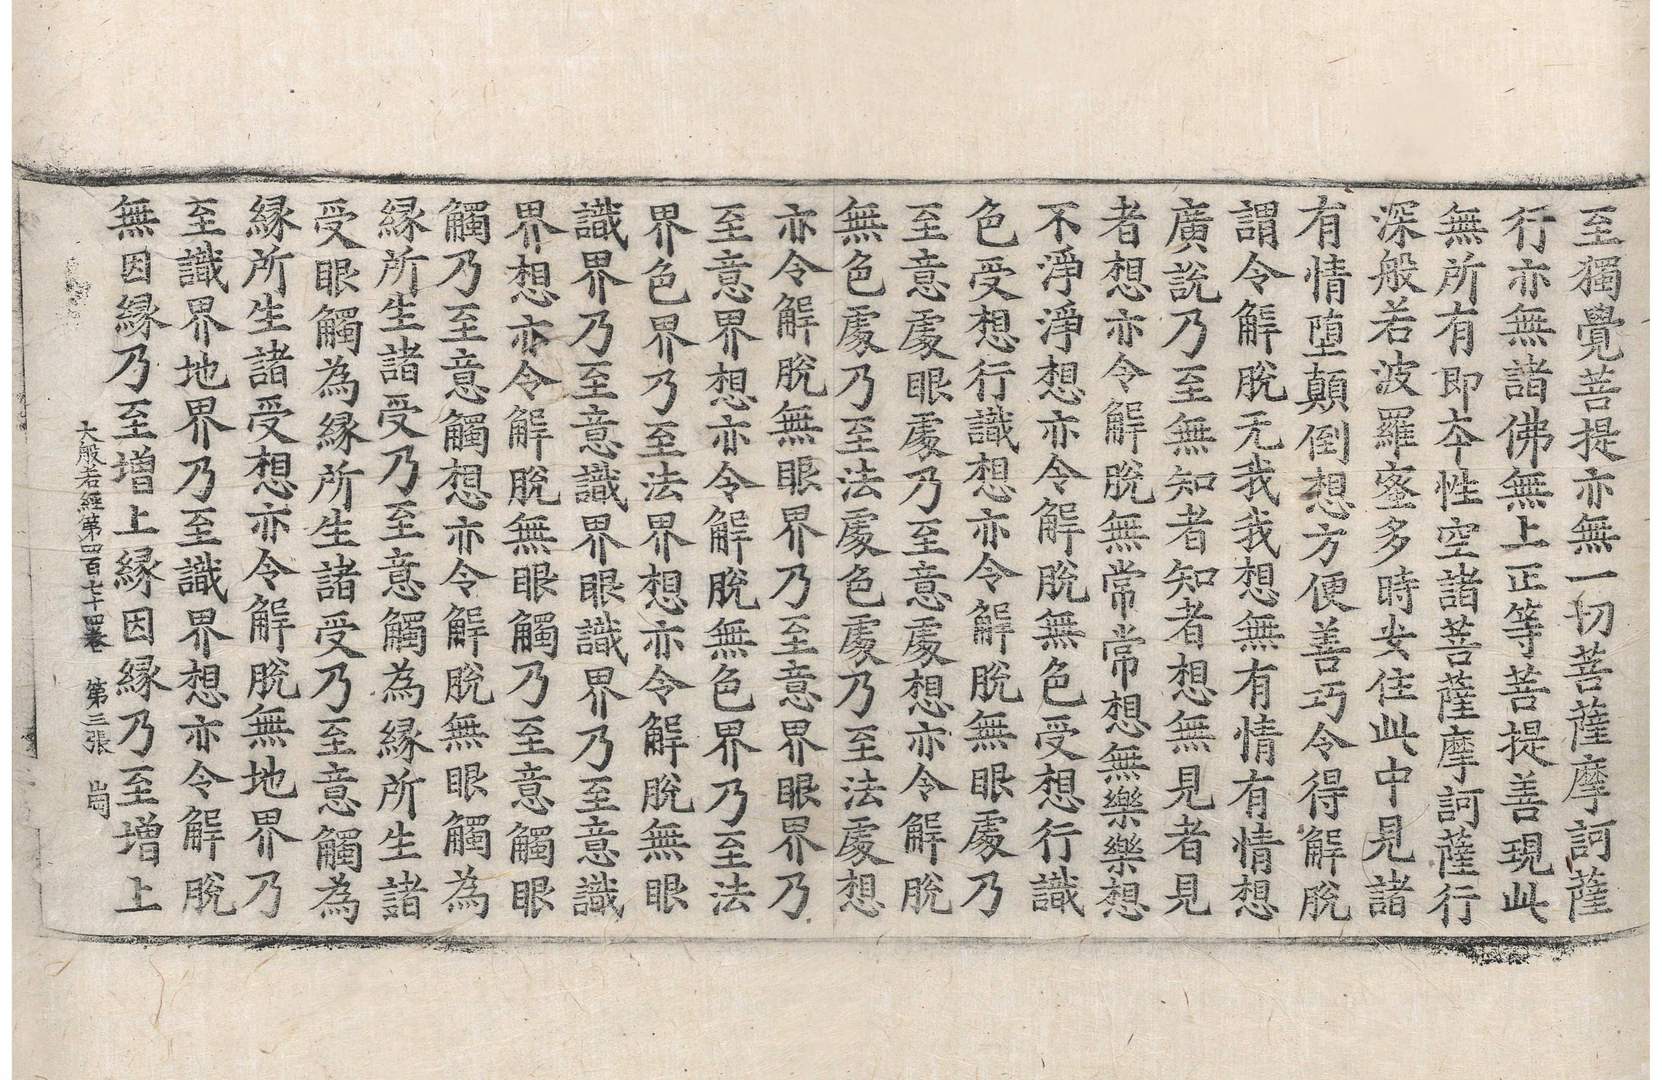 至獨覺菩提亦無一切菩薩摩訶薩
行亦無諸佛無上正等菩提善現此
無所有即夲性空諸菩薩摩訶薩行
深般若波羅蜜多時安住此中見諸
有情墮顛倒想方便善巧令得解脫
謂令解脫无我我想無有情有情想
廣說乃至無知者知者想無見者見
者想亦令解脫無常常想無樂樂想
不淨淨想亦令解脫無色受想行識
色受想行識想亦令解脫無眼處乃
至意處眼處乃至意處想亦令解脫
無色處乃至法處色處乃至法處想
亦令解脫無眼界乃至意界眼界乃
至意界想亦令解脫無色界乃至法
界色界乃至法界想亦令解脫無眼
識界乃至意識界眼識界乃至意識
界想亦令解脫無眼觸乃至意觸眼
觸乃至意觸想亦令解脫無眼觸為
緣所生諸受乃至意觸為緣所生諸
受眼觸為緣所生諸受乃至意觸為
緣所生諸受想亦令解脫無地界乃
至識界地界乃至識界想亦令解脫
無因緣乃至增上緣因緣乃至增上
大般若經第四百七十四卷 第三張 崗